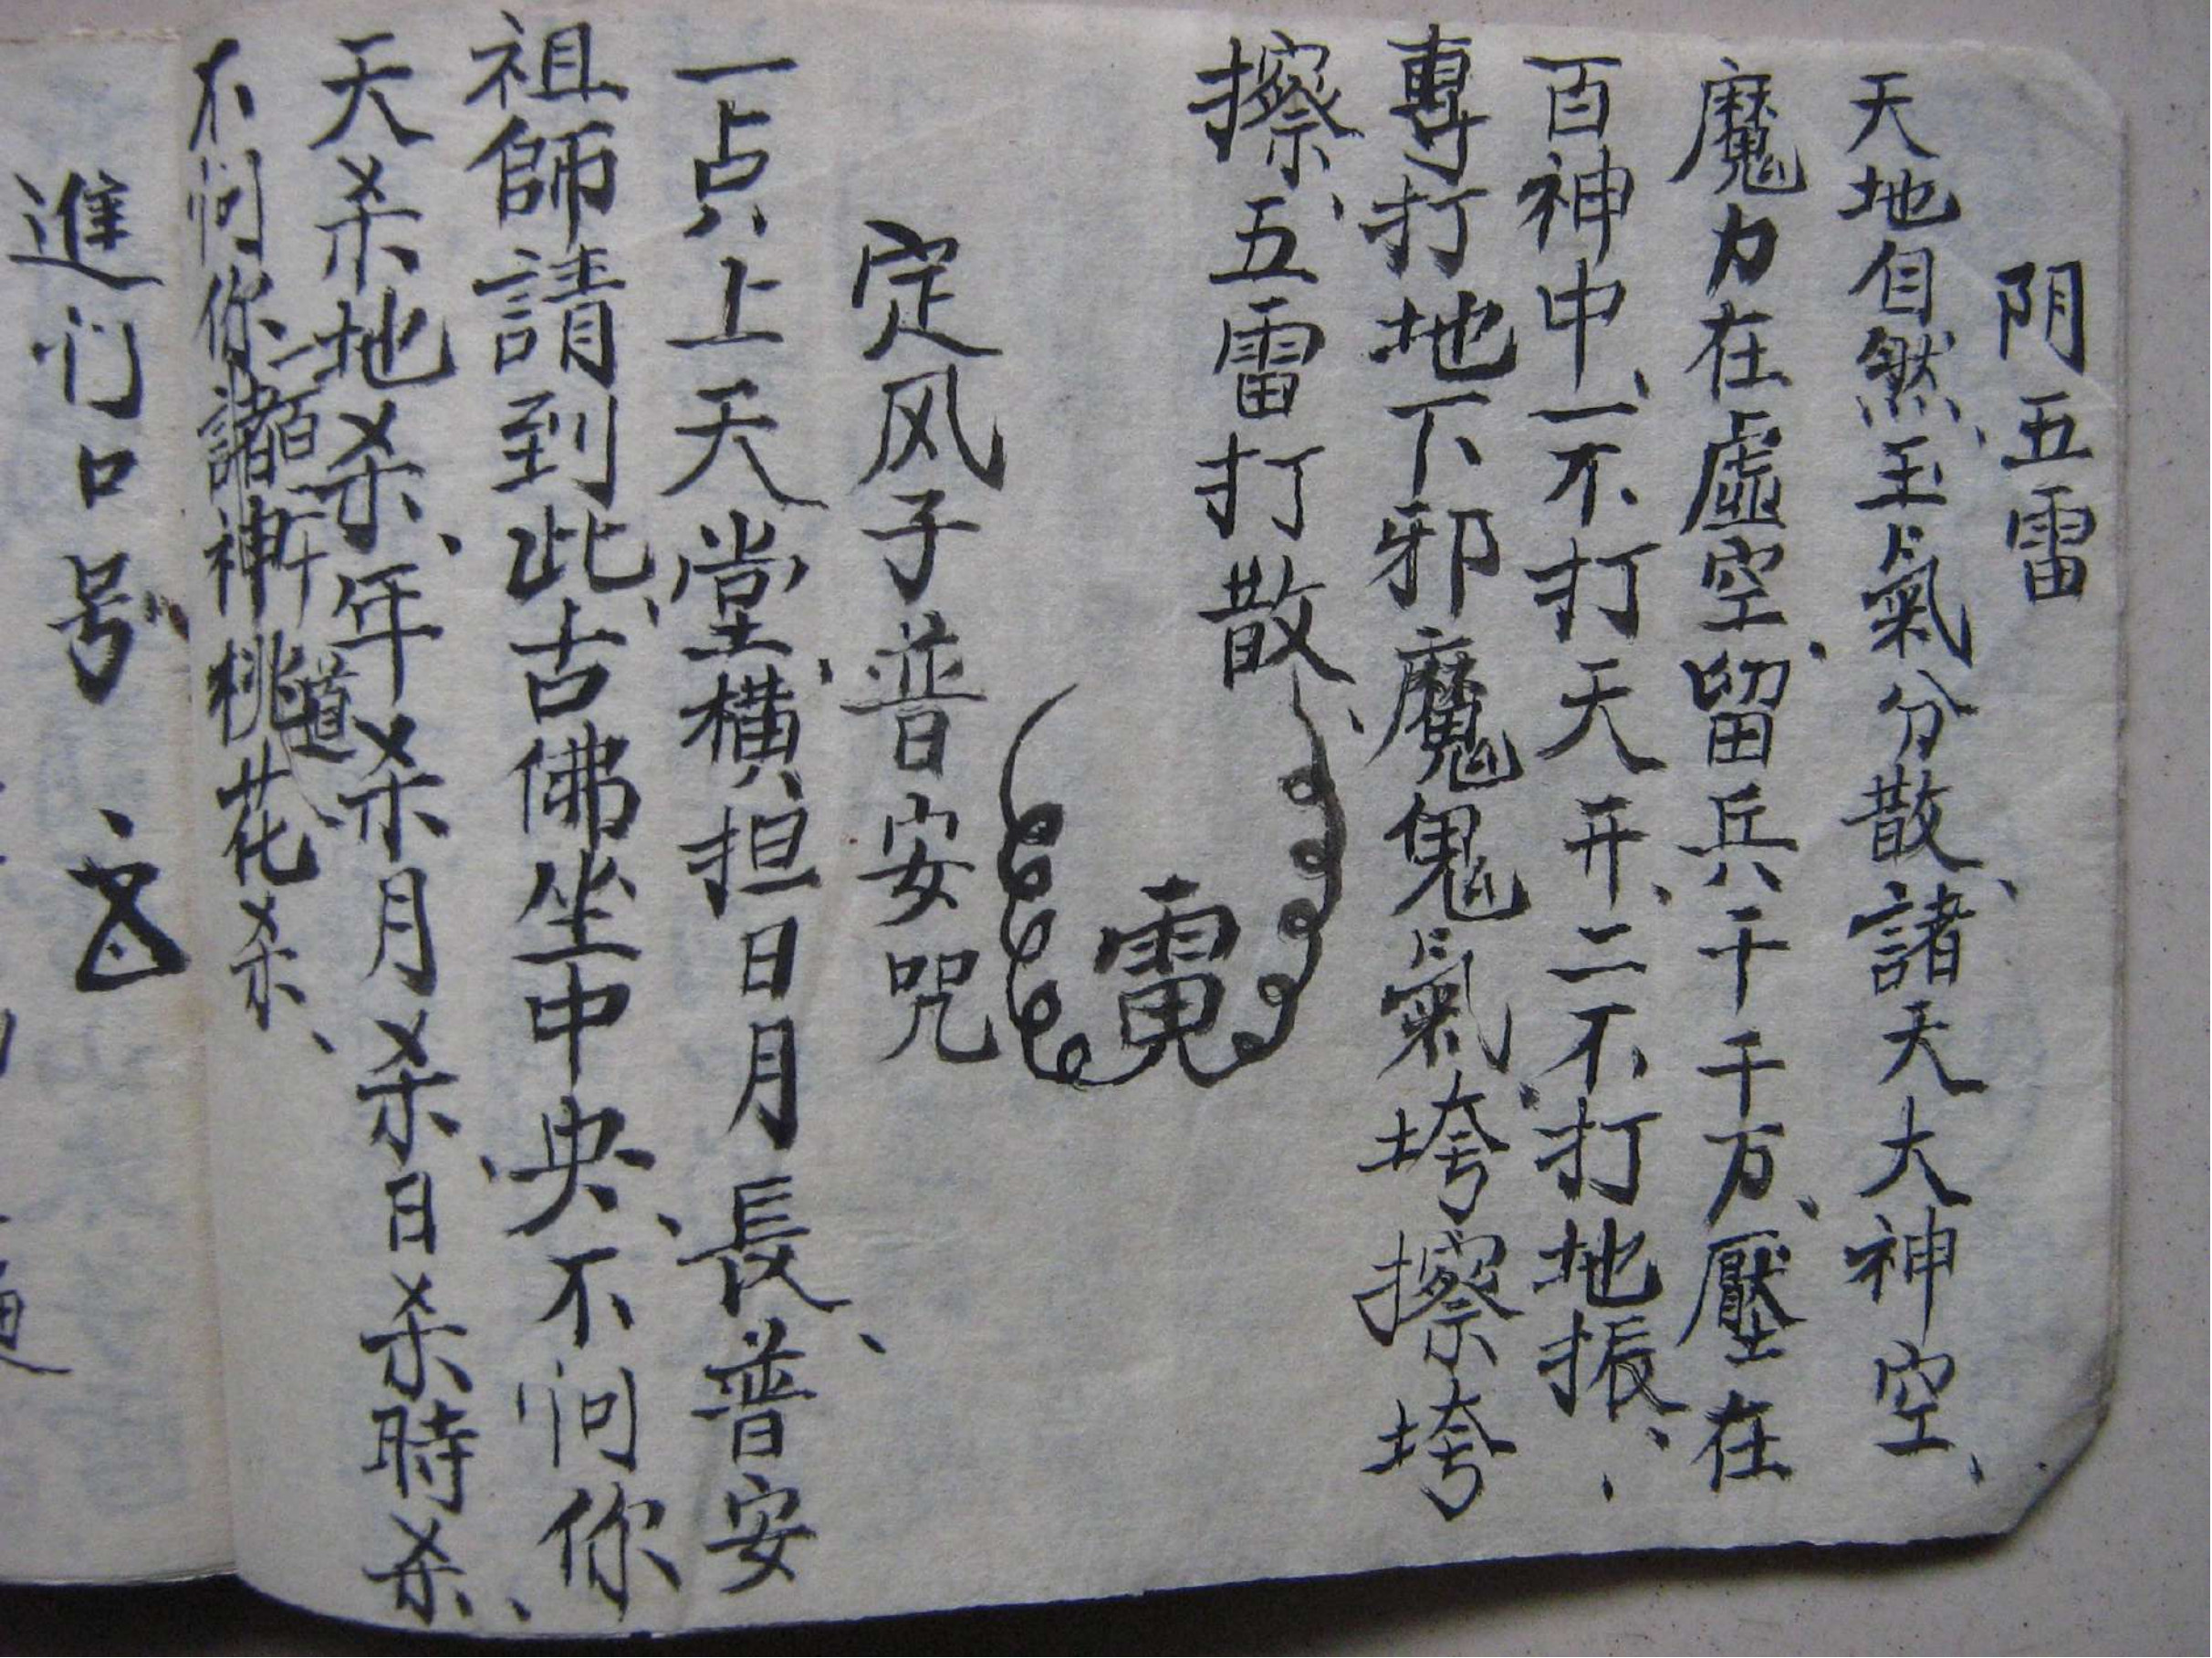 阴五雷
天地自然玉氣分散、諸天大神空、
魔力在虛空、留兵千千万、壓在
百神中、一不打天开、二不打地振、
專打地下邪魔鬼氣、垮擦垮
擦、五雷打散、
雷
定风子普安咒
一点上天堂、横担日月長、普安
祖師請到此、古佛坐中央、不问你
天杀地杀、年杀月杀、日杀時杀、
不问你、一百二十道
諸神桃花杀、
進门口号、